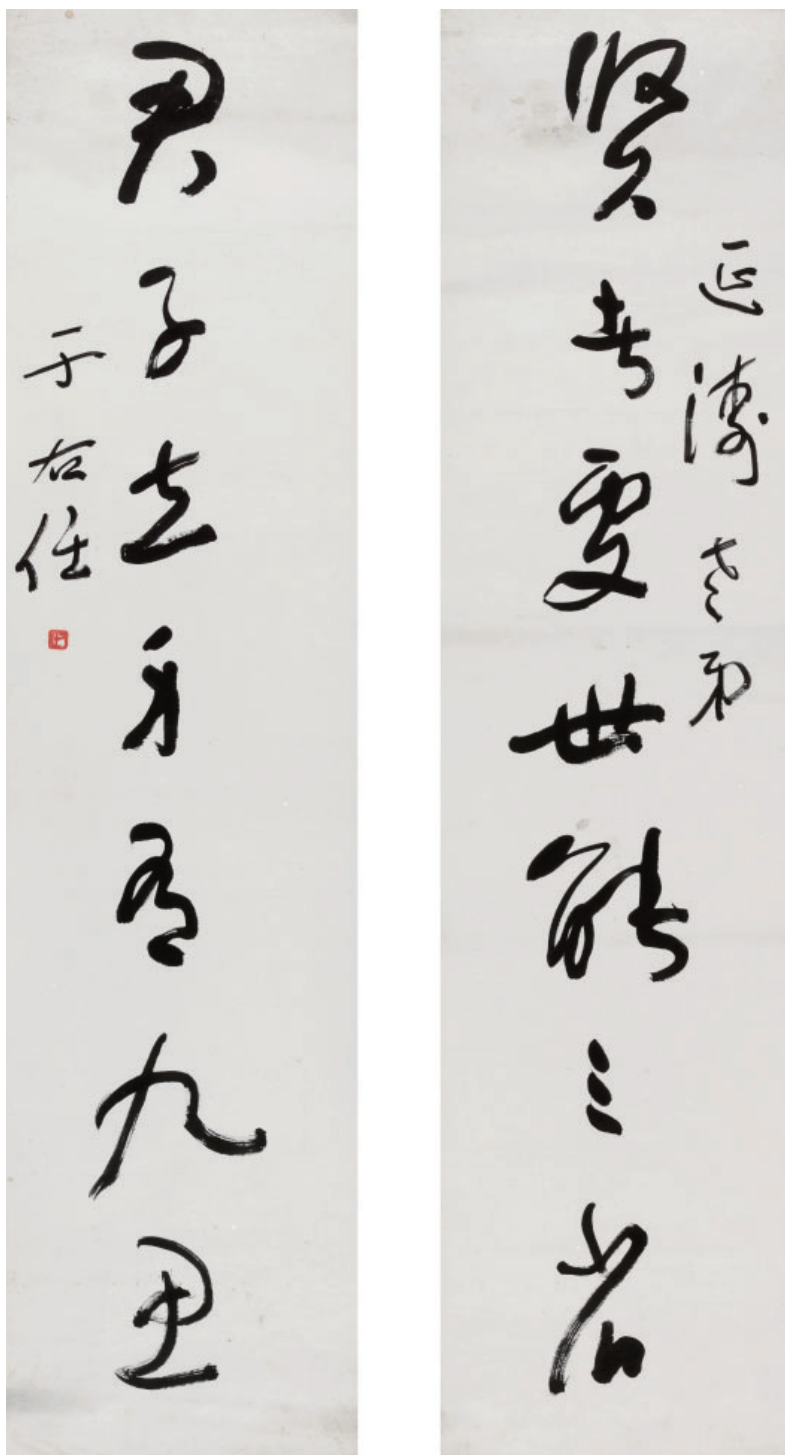 延濤老弟
賢者處世能三省
君子立身有九思
于右任